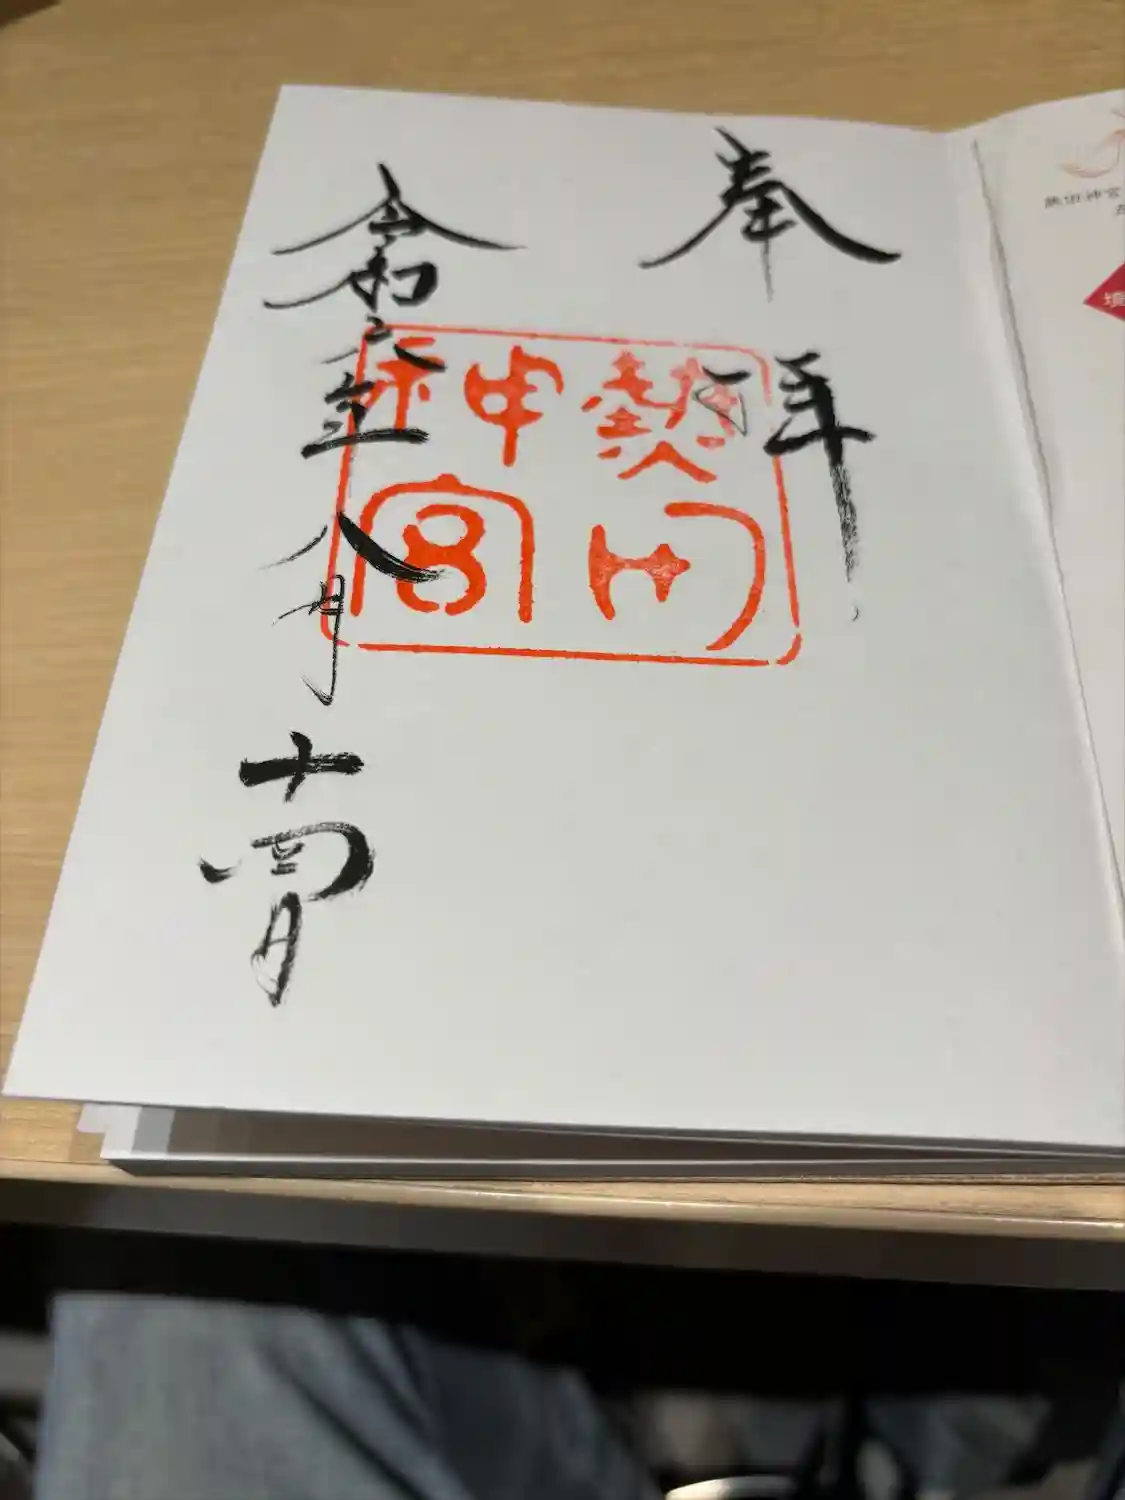 熱田神宮
奉拝
熱田
神宮
令和六年八月十四日